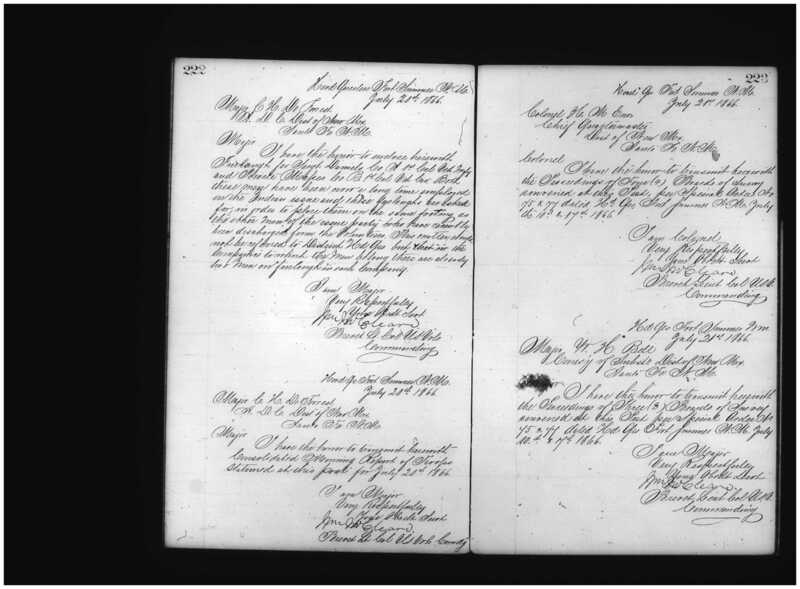 222
Head Quarters Fort Sumner N. M.
July 20th 1866.
Major C. H. De Forrest
A. D. C. Dist of New Mex
Santa Fe N. M.
Major
I have the honor to enclose herewith
Furloughs for Co 1st Cal Vet Infy
and Private Co B 1st Cal Vet Cav. Both
these men have been now a long time employed
in the Indian issue and these furloughs are asked
for in order to place them on the same footing as
the other men of the issue party who have recently
been discharged from the Volunteers. This matter should
not be referred to District Hd Qrs but that in the
Companies to which the men belong there are already
two men on furlough in each Company.
I am Major
Very Respectfully
Your Obdt Servt
Brevet Lt Col US Vols
Commanding
Head Qrs Fort Sumner N. M.
July 20th 1866.
Major C. H. De Forrest
A. D. C. Dist of New Mex
Santa Fe N. M.
Major
I have the honor to transmit herewith
Consolidated Morning Report of Troops
stationed at this post for July 20th 1866
I am Major
Very Respectfully
Your Obdt Servt
Brevet Lt Col US Vols Comdg
223
Head Qrs Fort Sumner N. M.
July 21st 1866.
Colonel
Chief Quartermaster
Dist of New Mex
Santa Fe N. M.
Colonel
I have the honor to transmit herewith
the Proceedings of Boards of Survey
convened at this Post per Special Orders No
75 & 77 dated Hd Qrs Fort Sumner N. M. July
1866
I am Colonel
Very Respectfully
Your Obdt Servt
Brevet Lieut Col U.S.V.
Commanding
Hd Qrs Fort Sumner N. M.
July 21st 1866.
Major W. H. Bell
Comsy of Subst Dist of New Mex
Santa Fe N. M.
I have the honor to transmit herewith
the Proceedings of Three (3) Boards of Survey
convened at this Post per Special Orders No
75 & 77 dated Hd Qrs Fort Sumner N. M. July
1866.
I am Major
Very Respectfully
Your Obdt Servt
Brevet Lieut Col U.S.V.
Commanding